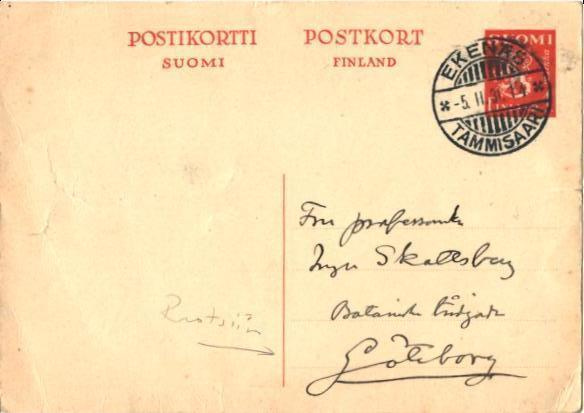 POSTIKORTTI POSTKORT
SUOMI FINLAND
SUOMI
EKENÄS
-5. II. 3
TAMMISAARI
Fru professorska
Inga Skottsberg
Botaniska trädgården
Göteborg
Ruotsiin